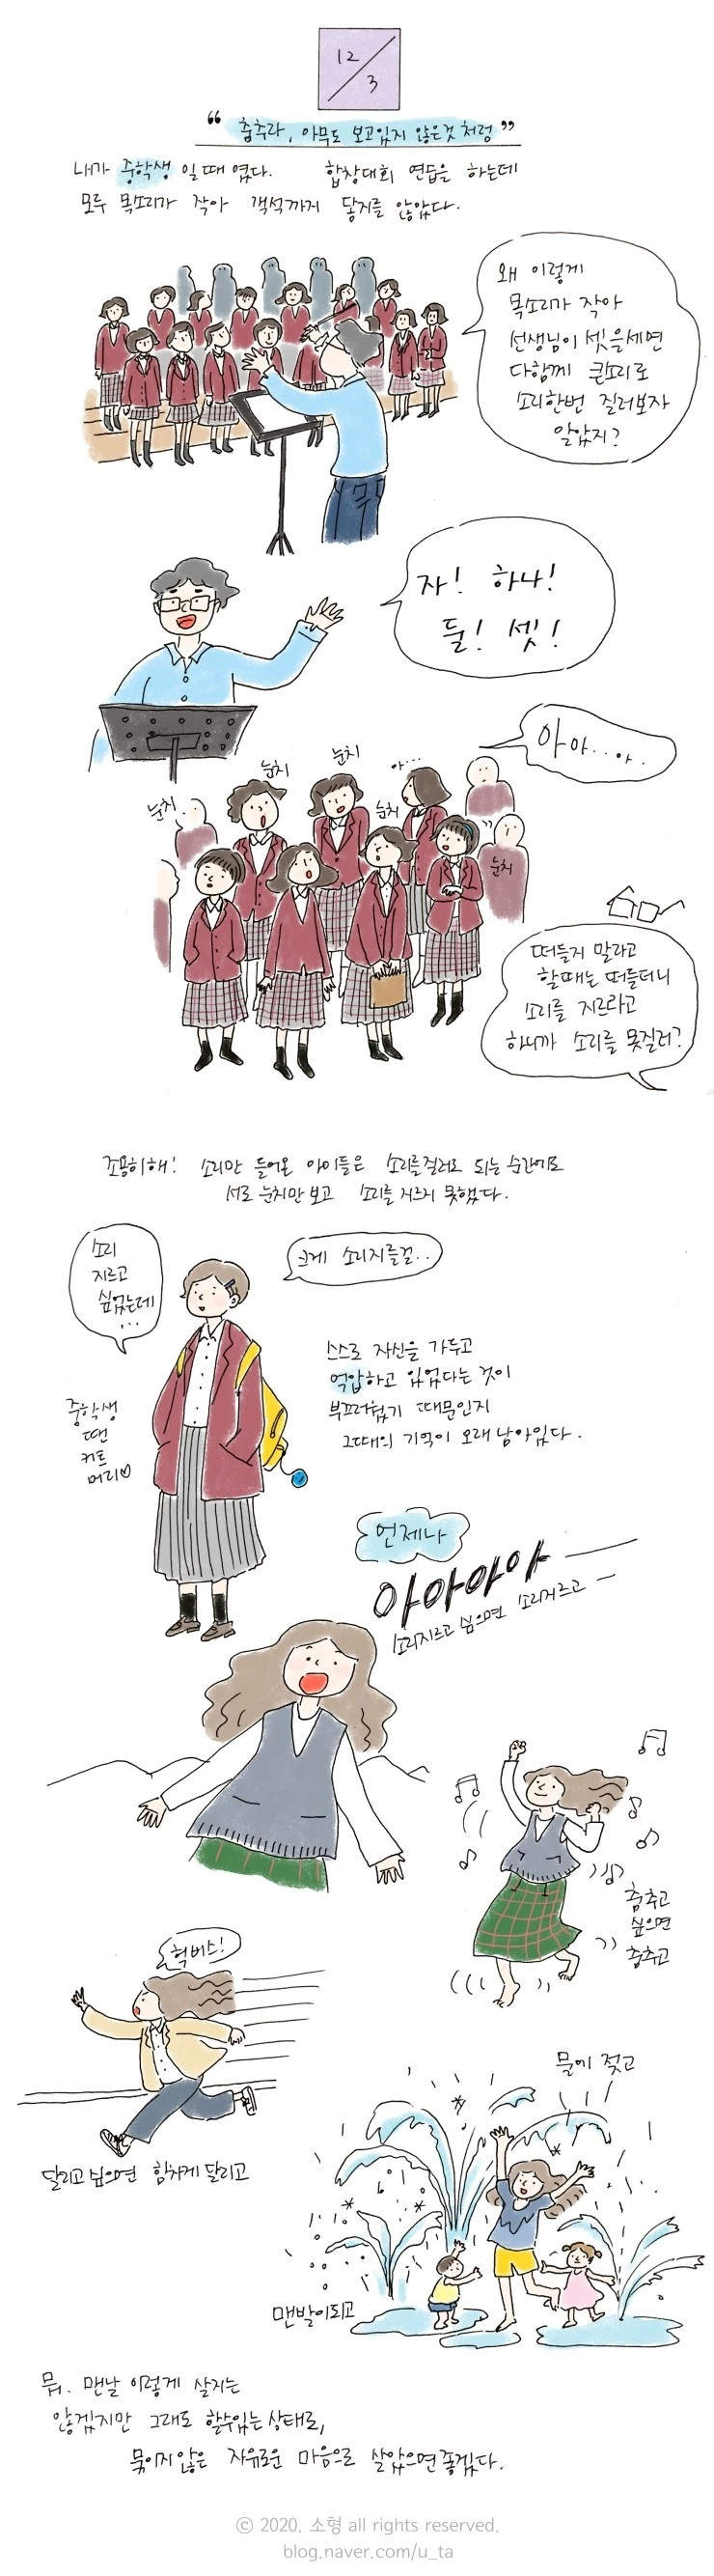 12/3
“춤추라, 아무도 보고있지 않은것 처럼”
내가 중학생 일때 였다. 합창대회 연습을 하는데
모두 목소리가 작아 객석까지 닿지를 않았다.
왜 이렇게
목소리가 작아
선생님이 셋을세면
다함께 큰소리로
소리한번 질러보자
알았지?
자! 하나!
둘! 셋!
아아...아.
눈치
눈치
아...
눈치
눈치
눈치
떠들지 말라고
할때는 떠들더니
소리를 지르라고
하니까 소리를 못질러?
조용히해! 소리만 들어온 아이들은 소리를질러도 되는 순간에도
서로 눈치만보고 소리를 지르지 못했다.
소리
지르고
싶었는데
...
크게 소리지를걸..
스스로 자신을 가두고
억압하고 있었다는 것이
부끄러웠기 때문인지
그때의 기억이 오래 남아있다.
중학생
땐
커트
머리♡
언제나
아아아아
소리지르고 싶으면 소리지르고
춤추고
싶으면
춤추고
헉버스!
달리고 싶으면 힘차게 달리고
물에 젖고
맨발이되고
뭐. 맨날 이렇게 살지는
않겠지만 그래도 할수있는 상태로,
묶이지않은 자유로운 마음으로 살았으면좋겠다.
ⓒ 2020. 소형 all rights reserved.
blog.naver.com/u_ta